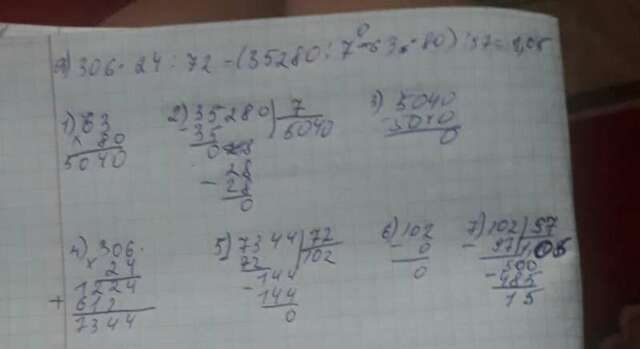 306 · 24 : 72 - (35280 : 7 - 63 · 80) : 97 = 1,05
1) 63
× 80
5040
2) 35280 | 7
- 35
5040
0 28
- 28
0
3) 5040
- 5040
0
4) 306
× 24
1224
+ 612
7344
5) 7344 | 72
72
102
- 144
144
0
6) 102
- 0
0
7) 102 | 97
- 97
1,05
500
- 485
15